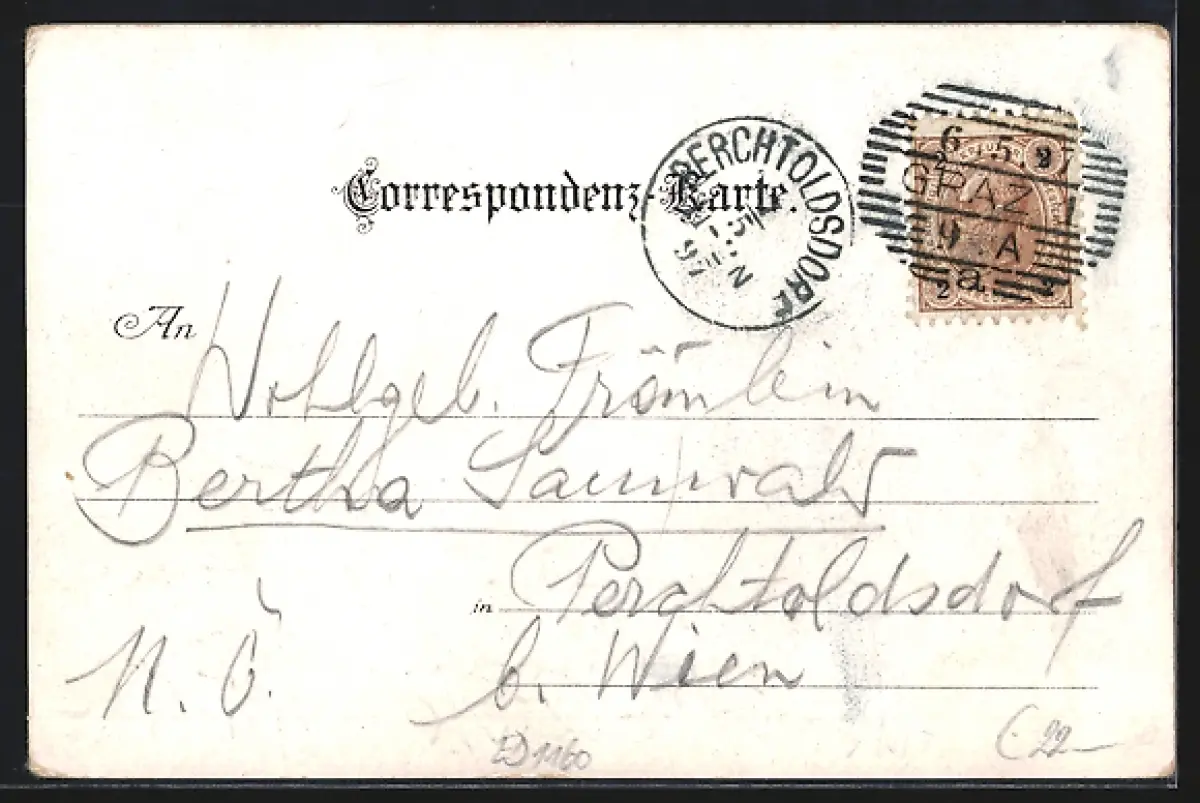 Correspondenz-Karte.
PERCHTOLDSDORF
97
6 5 97
GRAZ 1
9 A
a
2 2
2 2
An Wohlgeb. Fräulein
Bertha Saunwald
in Perchtoldsdorf
b. Wien
N. Ö.
1160
22